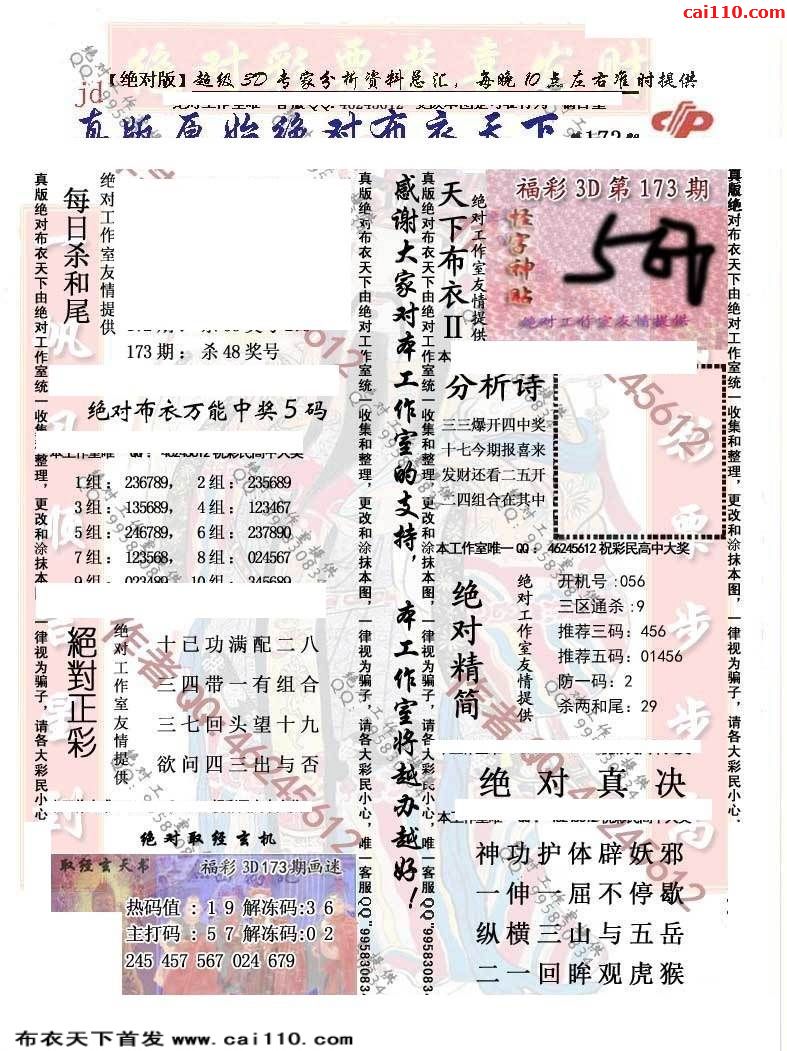 cai110.com
【绝对版】超级3D专家分析资料总汇，每晚10点左右准时提供
jd
真版原始绝对布衣天下
每日杀和尾
绝对工作室友情提供
173期：杀48奖号
绝对布衣万能中奖5码
本工作室唯一 QQ：46245612 祝彩民高中大奖
1组：236789， 2组：235689
3组：135689， 4组：123467
5组：246789， 6组：237890
7组：123568， 8组：024567
9组：023489 10组：345689
絕對正彩
绝对工作室友情提供
十己功满配二八
三四带一有组合
三七回头望十九
欲问四三出与否
绝对取经玄机
取经玄天书
福彩3D173期画迷
热码值：19解冻码:36
主打码：57解冻码:02
245 457 567 024 679
真版绝对布衣天下由绝对工作室统一收集和整理，更改和涂抹本图，一律视为骗子，请各大彩民小心，
感谢大家对本工作室的支持，本工作室将越办越好！
真版绝对布衣天下由绝对工作室统一收集和整理，更改和涂抹本图，一律视为骗子，请各大彩民小心，唯一客服QQ"99583083
天下布衣II
绝对工作室友情提供
福彩3D第173期
怪字神贴
绝对工作室友情提供
分析诗
三三爆开四中奖
十七今期报喜来
发财还看二五开
二四组合在其中
本工作室唯一QQ：46245612祝彩民高中大奖
绝对精简
绝对工作室友情提供
开机号:056
三区通杀:9
推荐三码:456
推荐五码:01456
防一码:2
杀两和尾:29
绝对真决
神功护体辟妖邪
一伸一屈不停歇
纵横三山与五岳
二一回眸观虎猴
真版绝对布衣天下由绝对工作室统一收集和整理，更改和涂抹本图，一律视为骗子，请各大彩民小心，
作者QQ:46245612
作者QQ:46245612
布衣天下首发 www.cai110.com